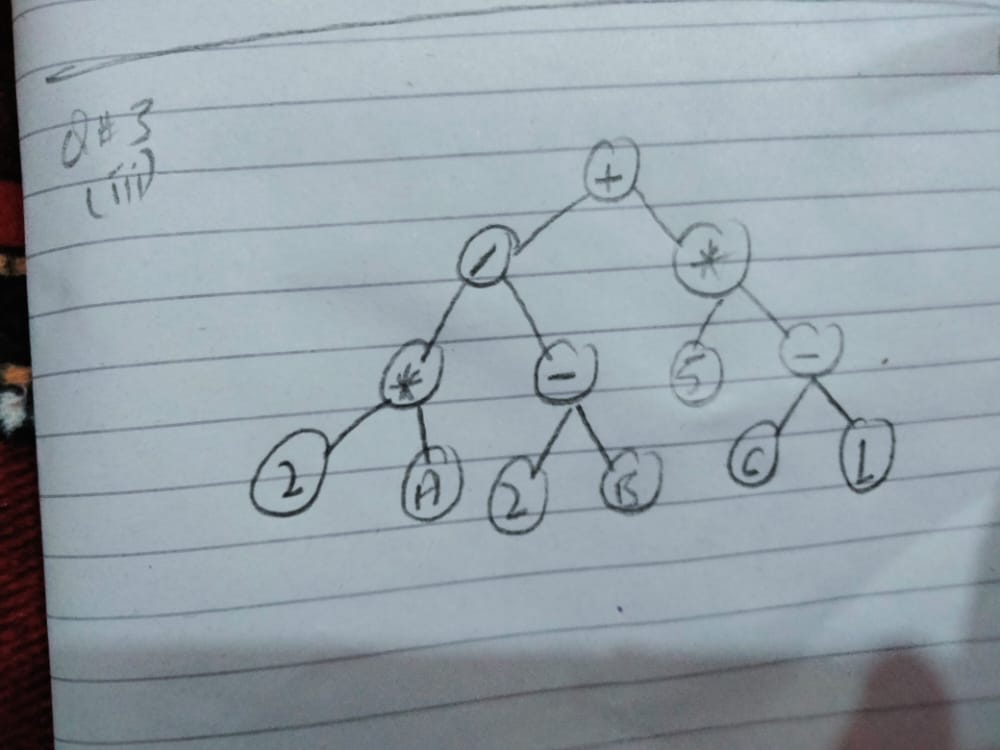 Q#3
(iii)
+
/ *
* - 5 -
2 A 2 B C 1